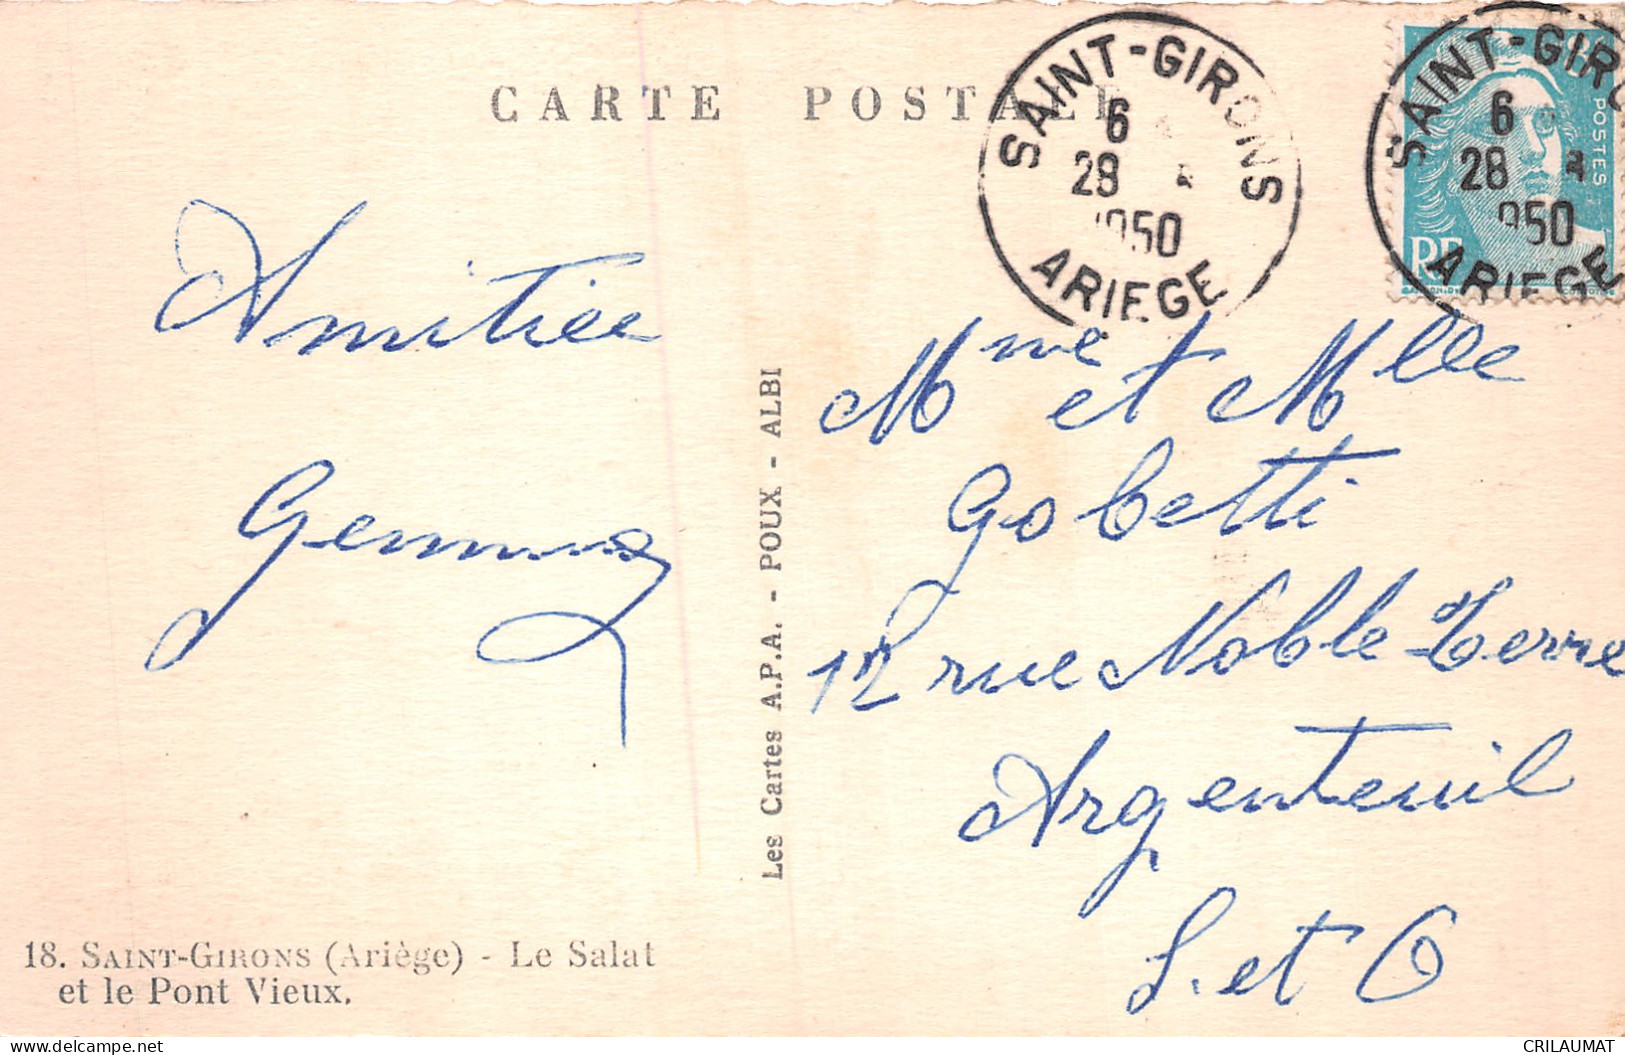 CARTE POSTALE
SAINT-GIRONS
6
28
1950
ARIEGE
SAINT-GIRONS
6
28
1950
ARIEGE
POSTES
RF
Amitiée
Mme et Mlle
Gobetti
12 rue Noble Terre
Argenteuil
S. et O
Les Cartes A.P.A. - POUX - ALBI
18. SAINT-GIRONS (Ariège) - Le Salat
et le Pont Vieux.
CRILAUMAT